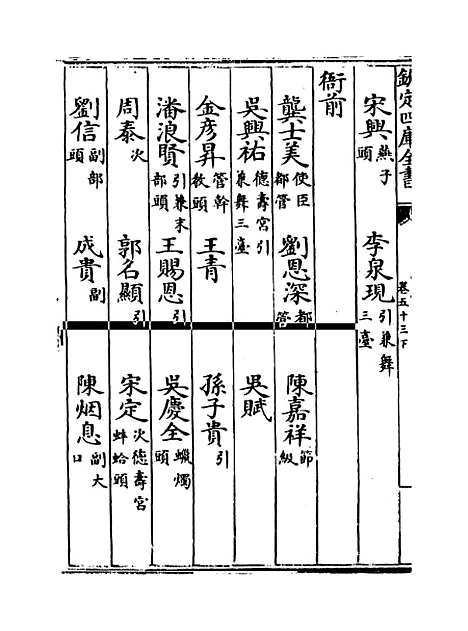 欽定四庫全書
卷五十三下
宋興燕子頭 李泉現引兼舞三臺
衙前
龔士美使臣都管 劉恩深都管 陳嘉祥節級
吳興祐德壽宮引兼舞三臺 吳賦
金彥昇管幹教頭 王青 孫子貴引
潘浪賢引兼末部頭 王賜恩引 吳慶全蠟燭頭
周泰次 郭名顯引 宋定次德壽宮蚌蛤頭
劉信副部頭 成貴副 陳烟息副大口